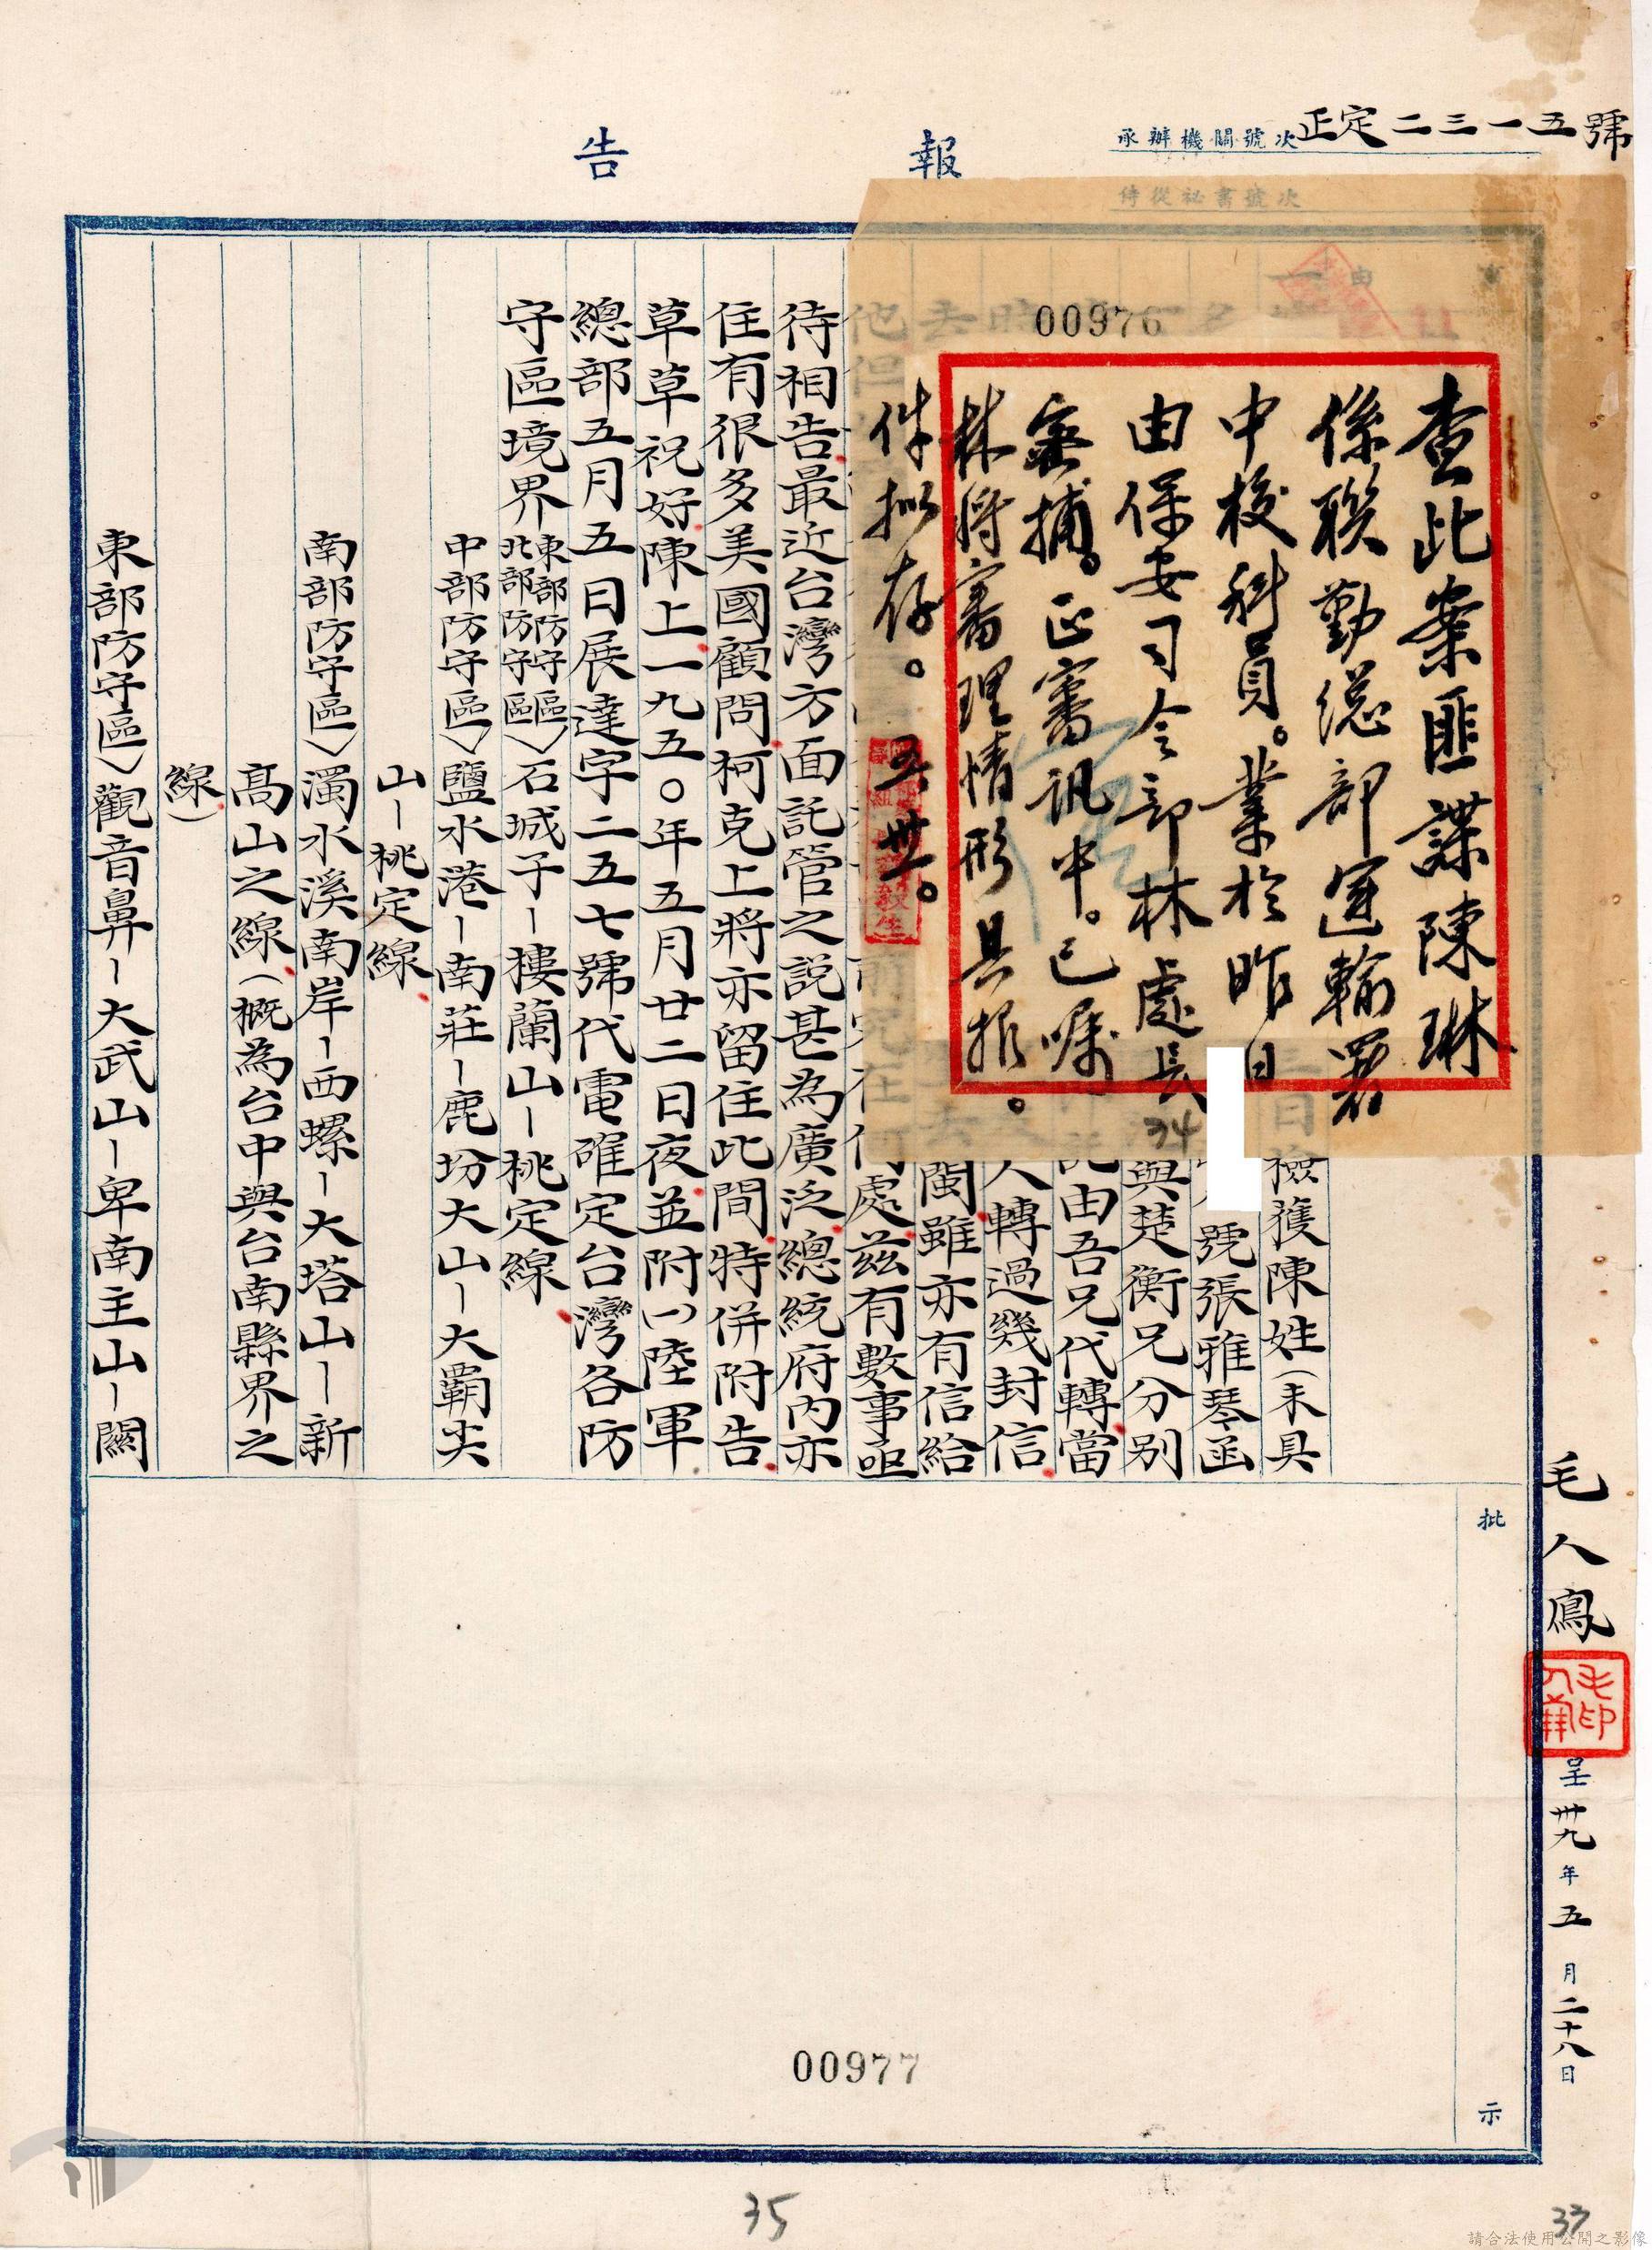 報告
承辦機關號次 正定二三一五號
侍從祕書號次
由
00976
查此案匪諜陳琳
係聯勤總部運輸署
中校科員。業於昨日
由保安司令部林處長
密捕。正審訊中。已囑
林將審理情形具報。
件擬存。
五卅。
34
檢獲陳姓(未具
號張雅琴函
與楚衡兄分別
由吾兄代轉當
人轉過幾封信
閩雖亦有信給
處茲有數事亟
待相告最近台灣方面託管之說甚為廣泛總統府內亦
住有很多美國顧問柯克上將亦留住此間特併附告
草草祝好陳上一九五〇年五月廿二日夜並附(一)陸軍
總部五月五日展達字二五七號代電確定台灣各防
守區境界
東部防守區
北部防守區)石城子-樓蘭山-桃定線
中部防守區)鹽水港-南莊-鹿坊大山-大霸尖
山-桃定線
南部防守區)濁水溪南岸-西螺-大塔山-新
高山之線(概為台中與台南縣界之
線)
東部防守區)觀音鼻-大武山-卑南主山-關
批
示
毛人鳳
呈卅九年五月二十八日
00977
35
33
請合法使用公開之影像